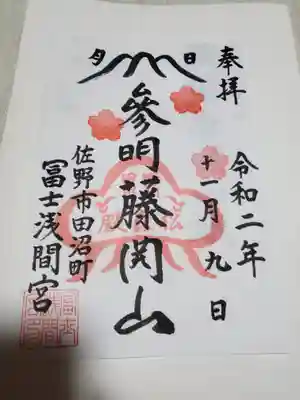 奉拝
令和二年
十一月九日
日
月
參明藤開山
佐野市田沼町
冨士浅間宮